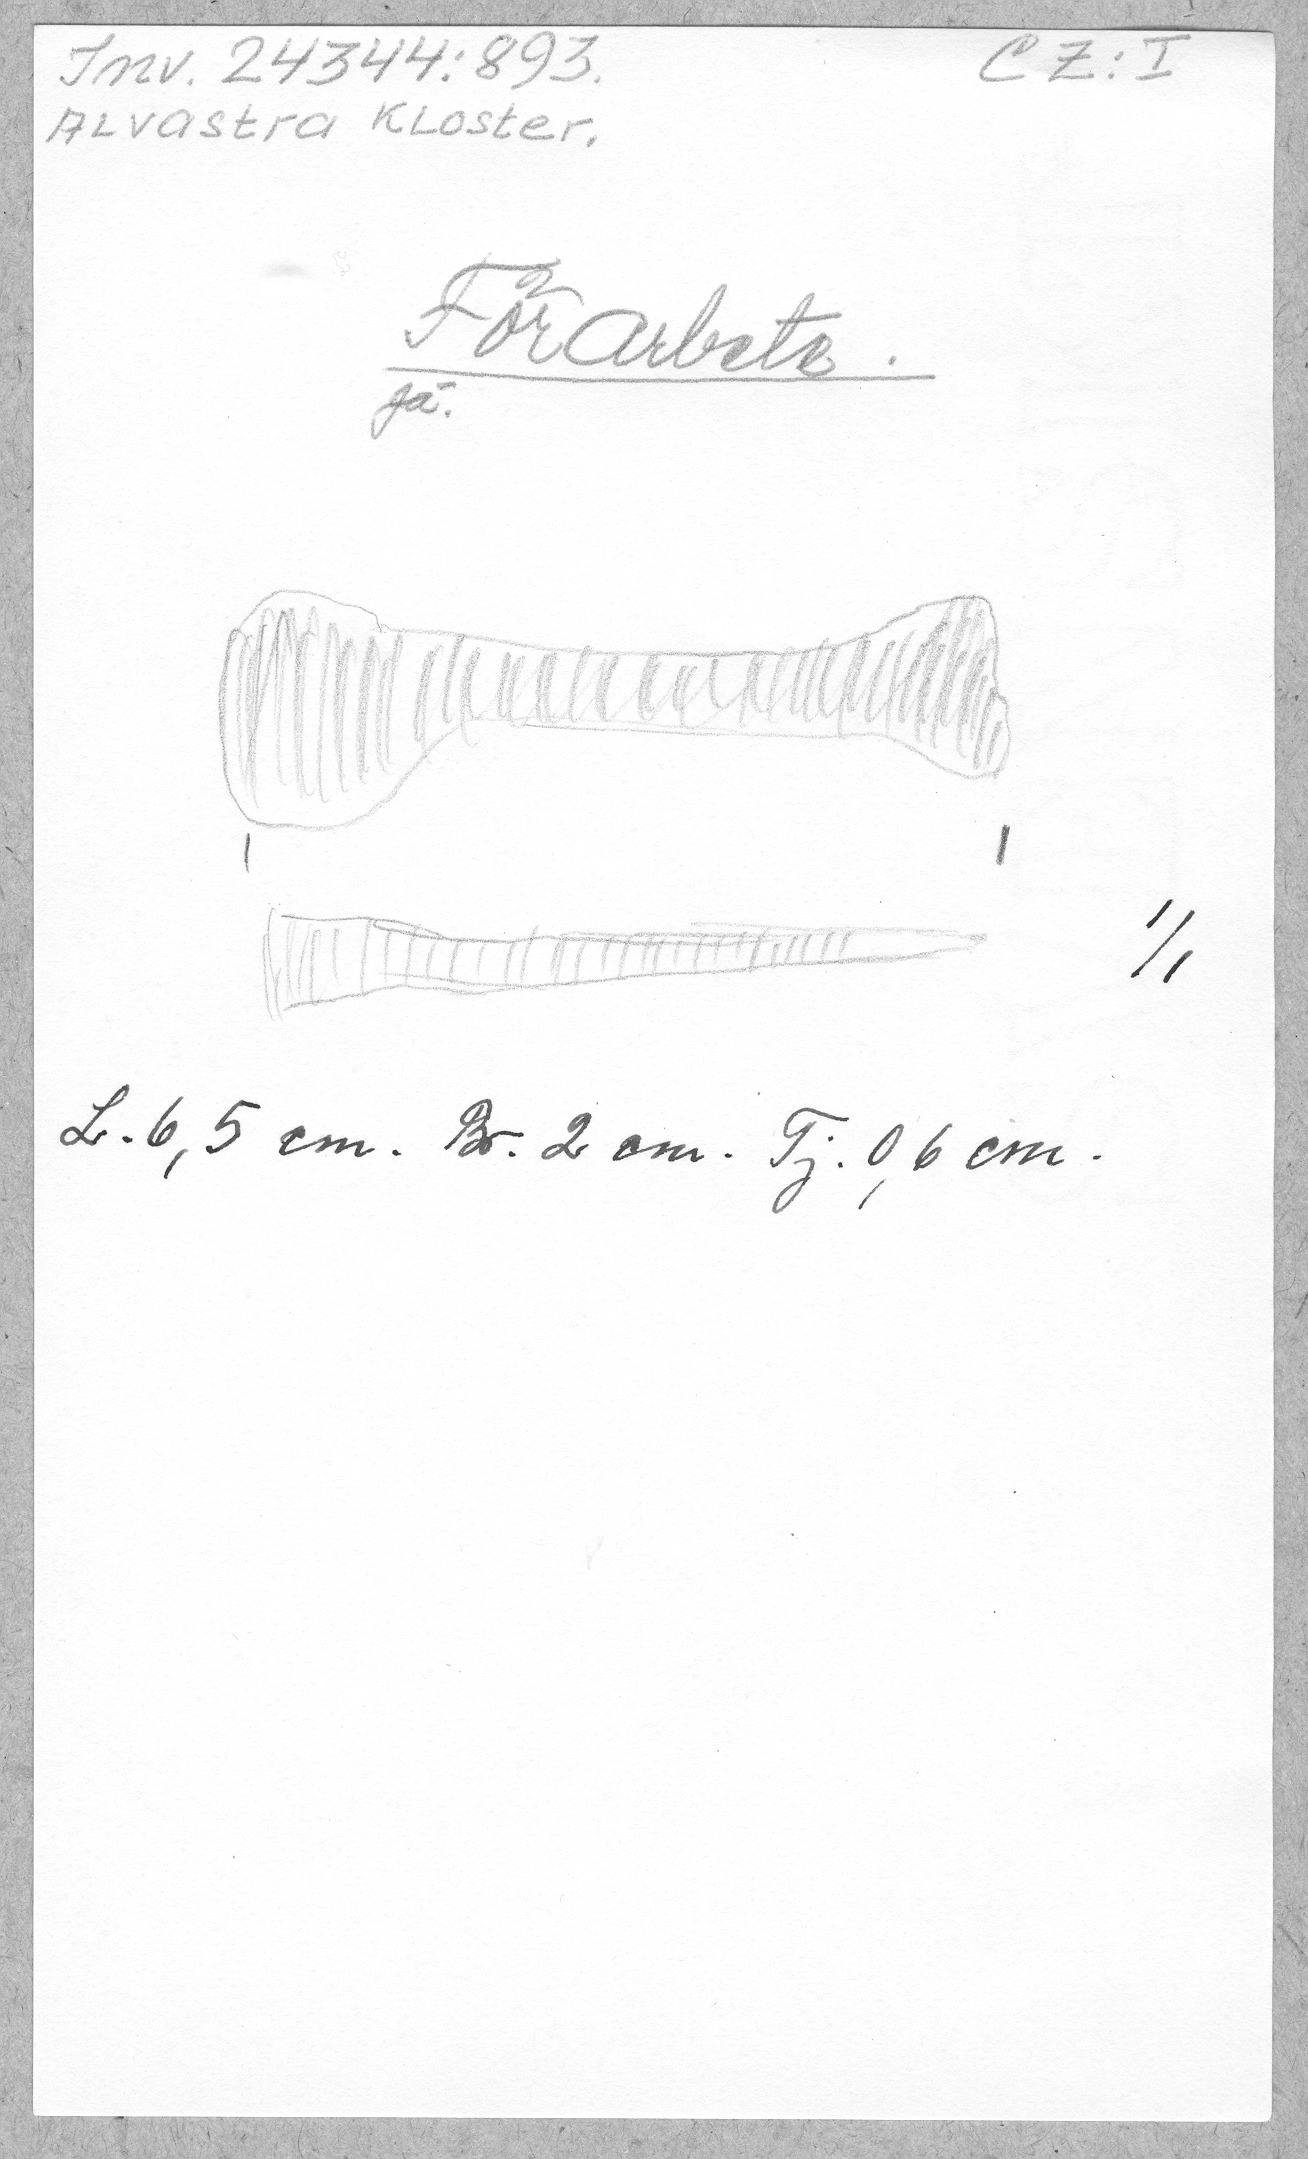 Inv. 24344:893.
CZ:I
Alvastra Kloster.
Förarbete.
Jä.
1/1
L. 6,5 cm. Br. 2 cm. Tj. 0,6 cm.